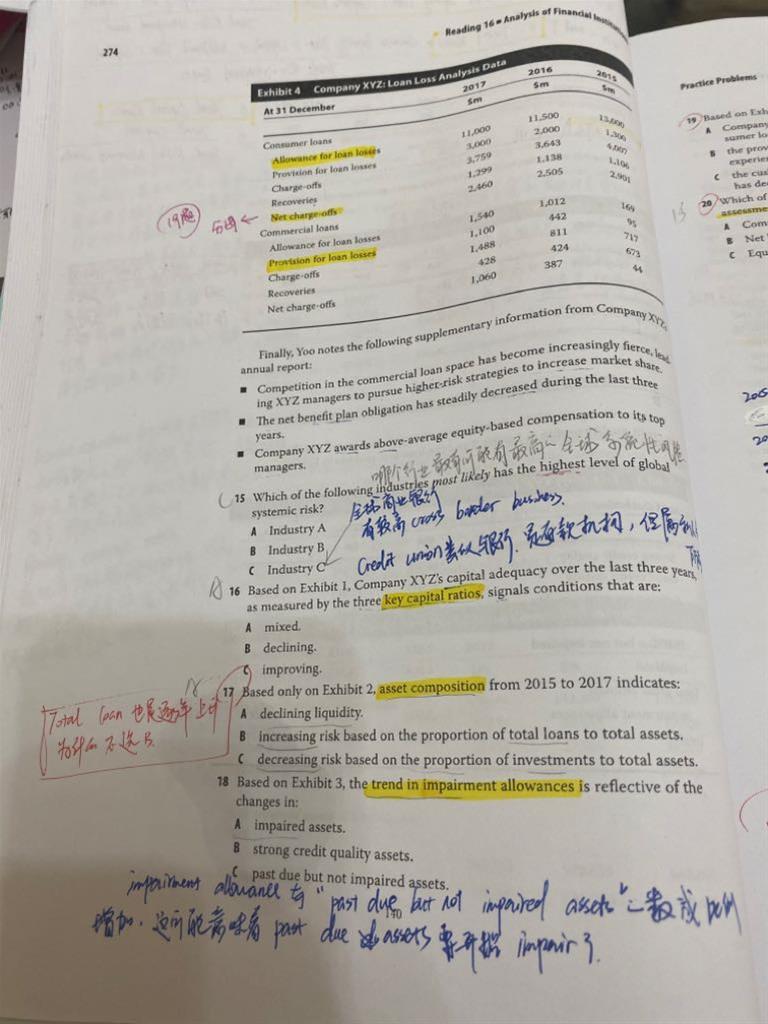 274
Reading 16 ■ Analysis of Financial Institu
Exhibit 4 Company XYZ: Loan Loss Analysis Data
At 31 December 2017 2016 2015
$m $m $m
Consumer loans 11,000 11,500 13,000
Allowance for loan losses 3,000 2,000 1,300
Provision for loan losses 3,759 3,643 4,007
Charge-offs 1,299 1,138 1,106
Recoveries 2,460 2,505 2,901
Net charge-offs
Commercial loans 1,540 1,012 169
Allowance for loan losses 1,100 442 95
Provision for loan losses 1,488 811 717
Charge-offs 428 424 673
Recoveries 1,060 387 44
Net charge-offs
19题
Finally, Yoo notes the following supplementary information from Company XYZ
annual report:
■ Competition in the commercial loan space has become increasingly fierce, lead
ing XYZ managers to pursue higher-risk strategies to increase market share.
■ The net benefit plan obligation has steadily decreased during the last three
years.
■ Company XYZ awards above-average equity-based compensation to its top
managers.
哪个行业最有可能有最高的全球系统性风险
15 Which of the following industries most likely has the highest level of global
systemic risk?
A Industry A
B Industry B
C Industry C
全球商业银行
有较高 cross border business.
Credit union类似银行.
16 Based on Exhibit 1, Company XYZ's capital adequacy over the last three years,
as measured by the three key capital ratios, signals conditions that are:
A mixed.
B declining.
C improving.
17 Based only on Exhibit 2, asset composition from 2015 to 2017 indicates:
A declining liquidity.
B increasing risk based on the proportion of total loans to total assets.
C decreasing risk based on the proportion of investments to total assets.
Total loan 也是逐年上升
为什么不选B.
18 Based on Exhibit 3, the trend in impairment allowances is reflective of the
changes in:
A impaired assets.
B strong credit quality assets.
C past due but not impaired assets.
impairment allowance 与 "past due but not impaired assets"之数或比例
增加. 这可能意味着 past due assets 要开始 impair了.
Practice Problems
19 Based on Exh
A Company
sumer lo
B the prov
experien
C the cus
has dec
20 Which of
assessme
A Com
B Net
C Equ